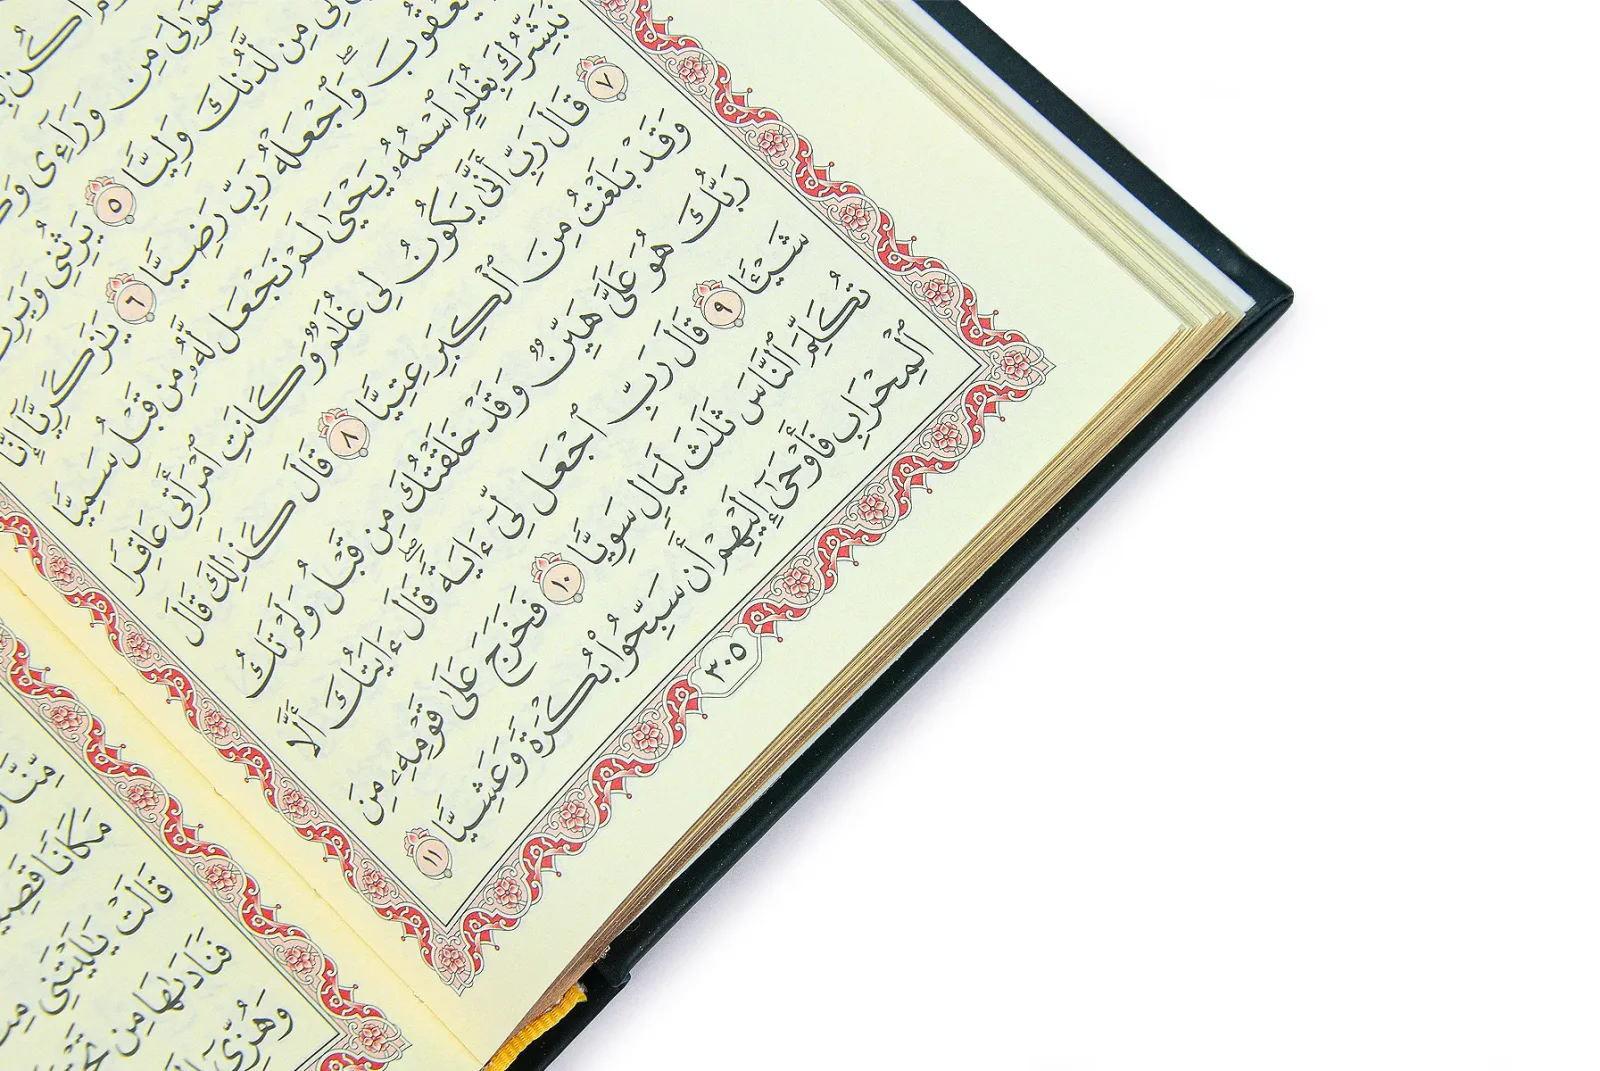 أَكُنۢ
مِن وَرَآءِى
لِى مِن لَّدُنكَ وَلِيًّا ٥ يَرِثُنِى وَيَرِثُ
يَعْقُوبَ ۖ وَٱجْعَلْهُ رَبِّ رَضِيًّا ٦ يَٰزَكَرِيَّآ إِنَّا
نُبَشِّرُكَ بِغُلَٰمٍ ٱسْمُهُۥ يَحْيَىٰ لَمْ نَجْعَل لَّهُۥ مِن قَبْلُ سَمِيًّا
٧ قَالَ رَبِّ أَنَّىٰ يَكُونُ لِى غُلَٰمٌ وَكَانَتِ ٱمْرَأَتِى عَاقِرًا
وَقَدْ بَلَغْتُ مِنَ ٱلْكِبَرِ عِتِيًّا ٨ قَالَ كَذَٰلِكَ قَالَ
رَبُّكَ هُوَ عَلَىَّ هَيِّنٌ وَقَدْ خَلَقْتُكَ مِن قَبْلُ وَلَمْ تَكُ
شَيْـًٔا ٩ قَالَ رَبِّ ٱجْعَل لِّىٓ ءَايَةً ۚ قَالَ ءَايَتُكَ أَلَّا
تُكَلِّمَ ٱلنَّاسَ ثَلَٰثَ لَيَالٍ سَوِيًّا ١٠ فَخَرَجَ عَلَىٰ قَوْمِهِۦ مِنَ
ٱلْمِحْرَابِ فَأَوْحَىٰٓ إِلَيْهِمْ أَن سَبِّحُوا۟ بُكْرَةً وَعَشِيًّا ١١
٣٠٥
مِّنَّا
مَكَانًا
قَالَتْ يَٰلَيْتَنِى
فَنَادَىٰهَا مِن
وَهُزِّىٓ